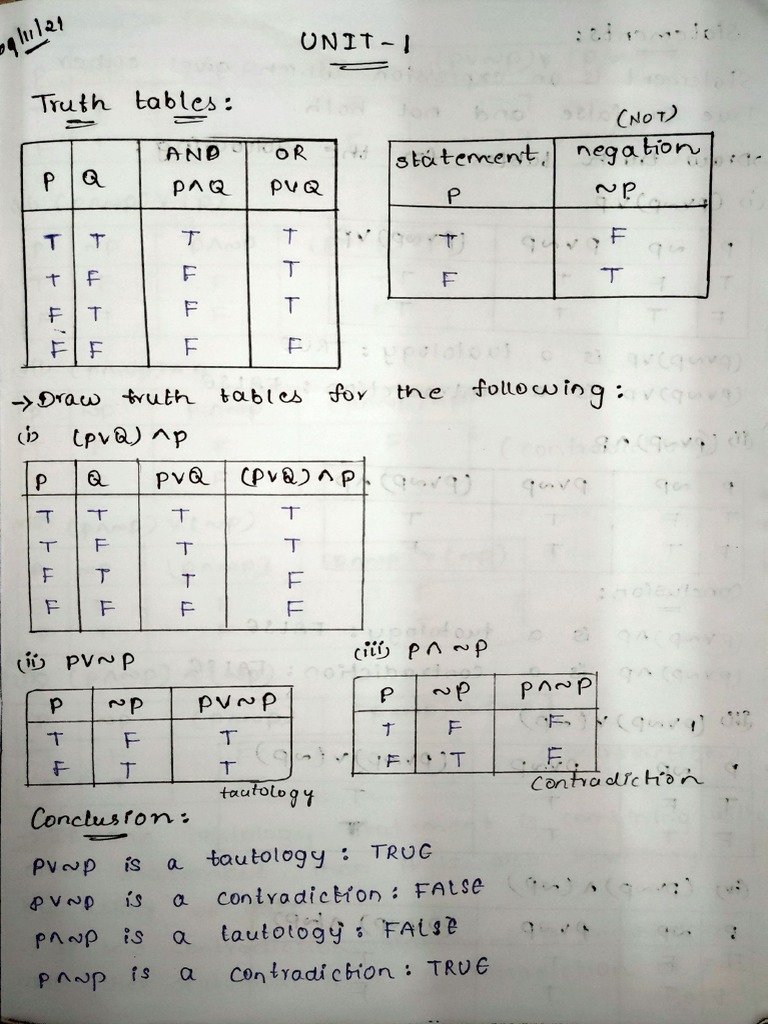 09/11/21
UNIT-1
Truth tables:
P Q AND P∧Q OR P∨Q
T T T T
T F F T
F T F T
F F F F
(NOT)
statement P negation ~P
T F
F T
→ Draw truth tables for the following:
(i) (P∨Q) ∧ P
P Q P∨Q (P∨Q) ∧ P
T T T T
T F T T
F T T F
F F F F
(ii) P∨~P
P ~P P∨~P
T F T
F T T
tautology
(iii) P∧ ~P
P ~P P∧~P
T F F
F T F
Contradiction
Conclusion:
P∨~P is a tautology: TRUE
P∨~P is a contradiction: FALSE
P∧~P is a tautology: FALSE
P∧~P is a contradiction: TRUE